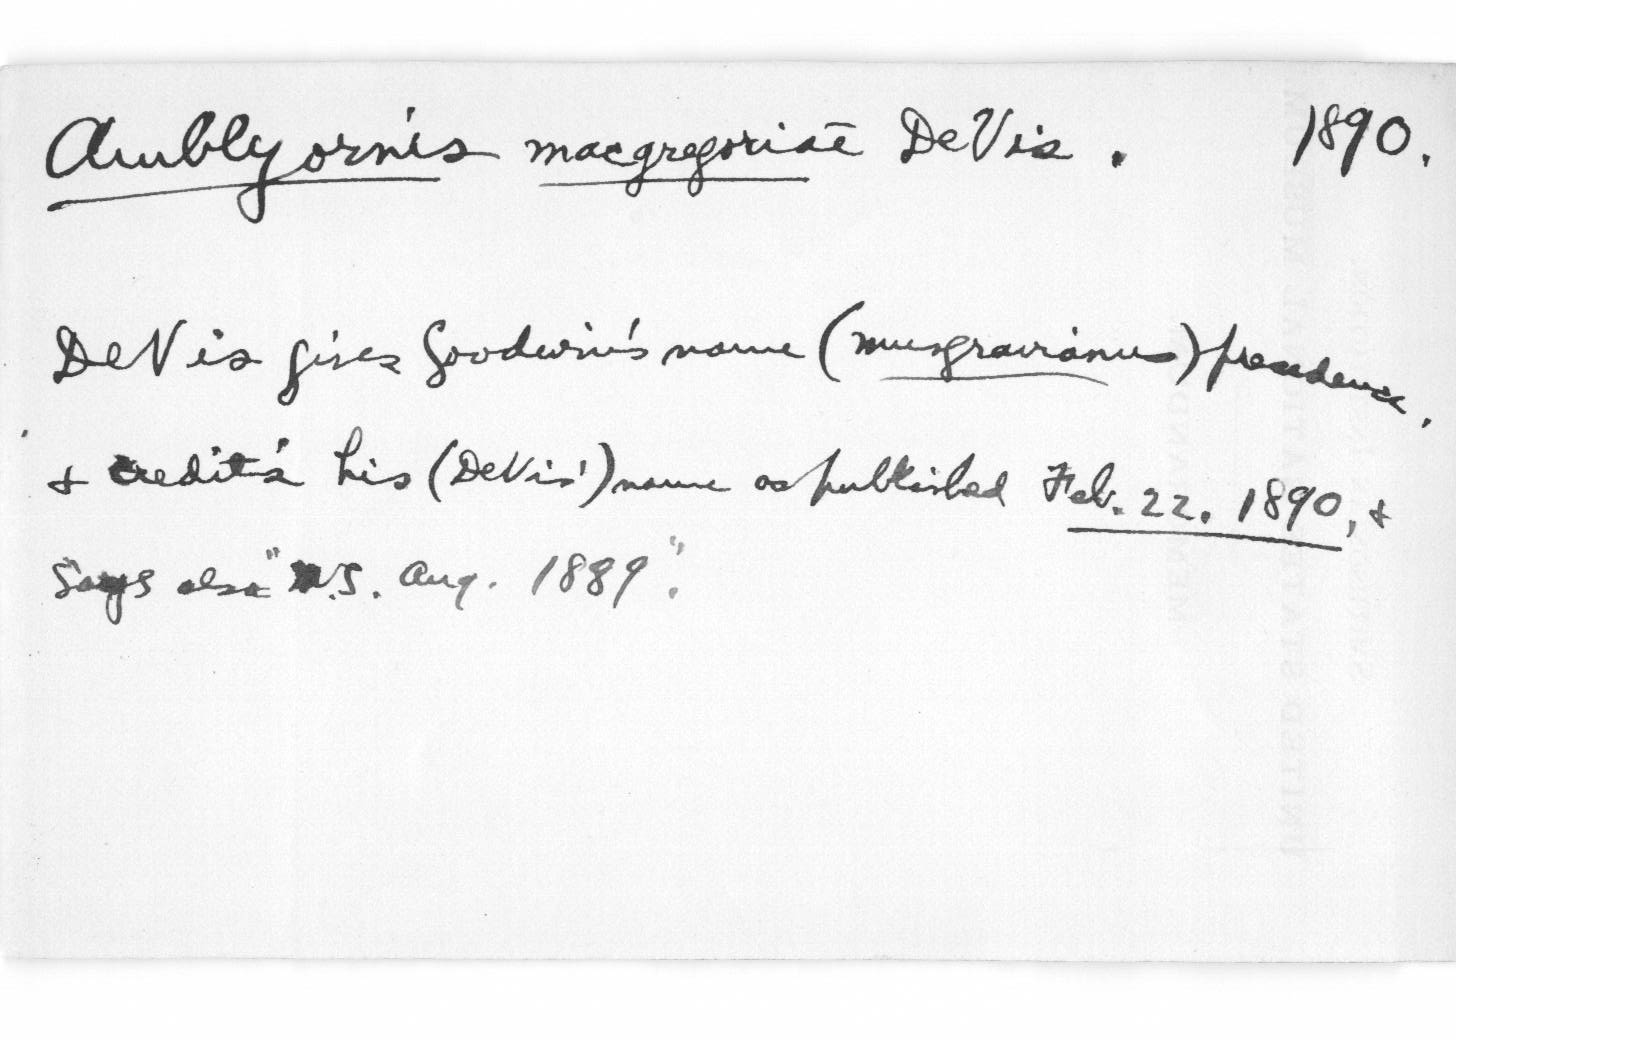 Amblyornis macgregoriae DeVis. 1890.
DeVis gives Goodwin's name (musgravianus) precedence,
& credits his (DeVis') name as published Feb. 22. 1890, &
says also "N.S. Aug. 1889".